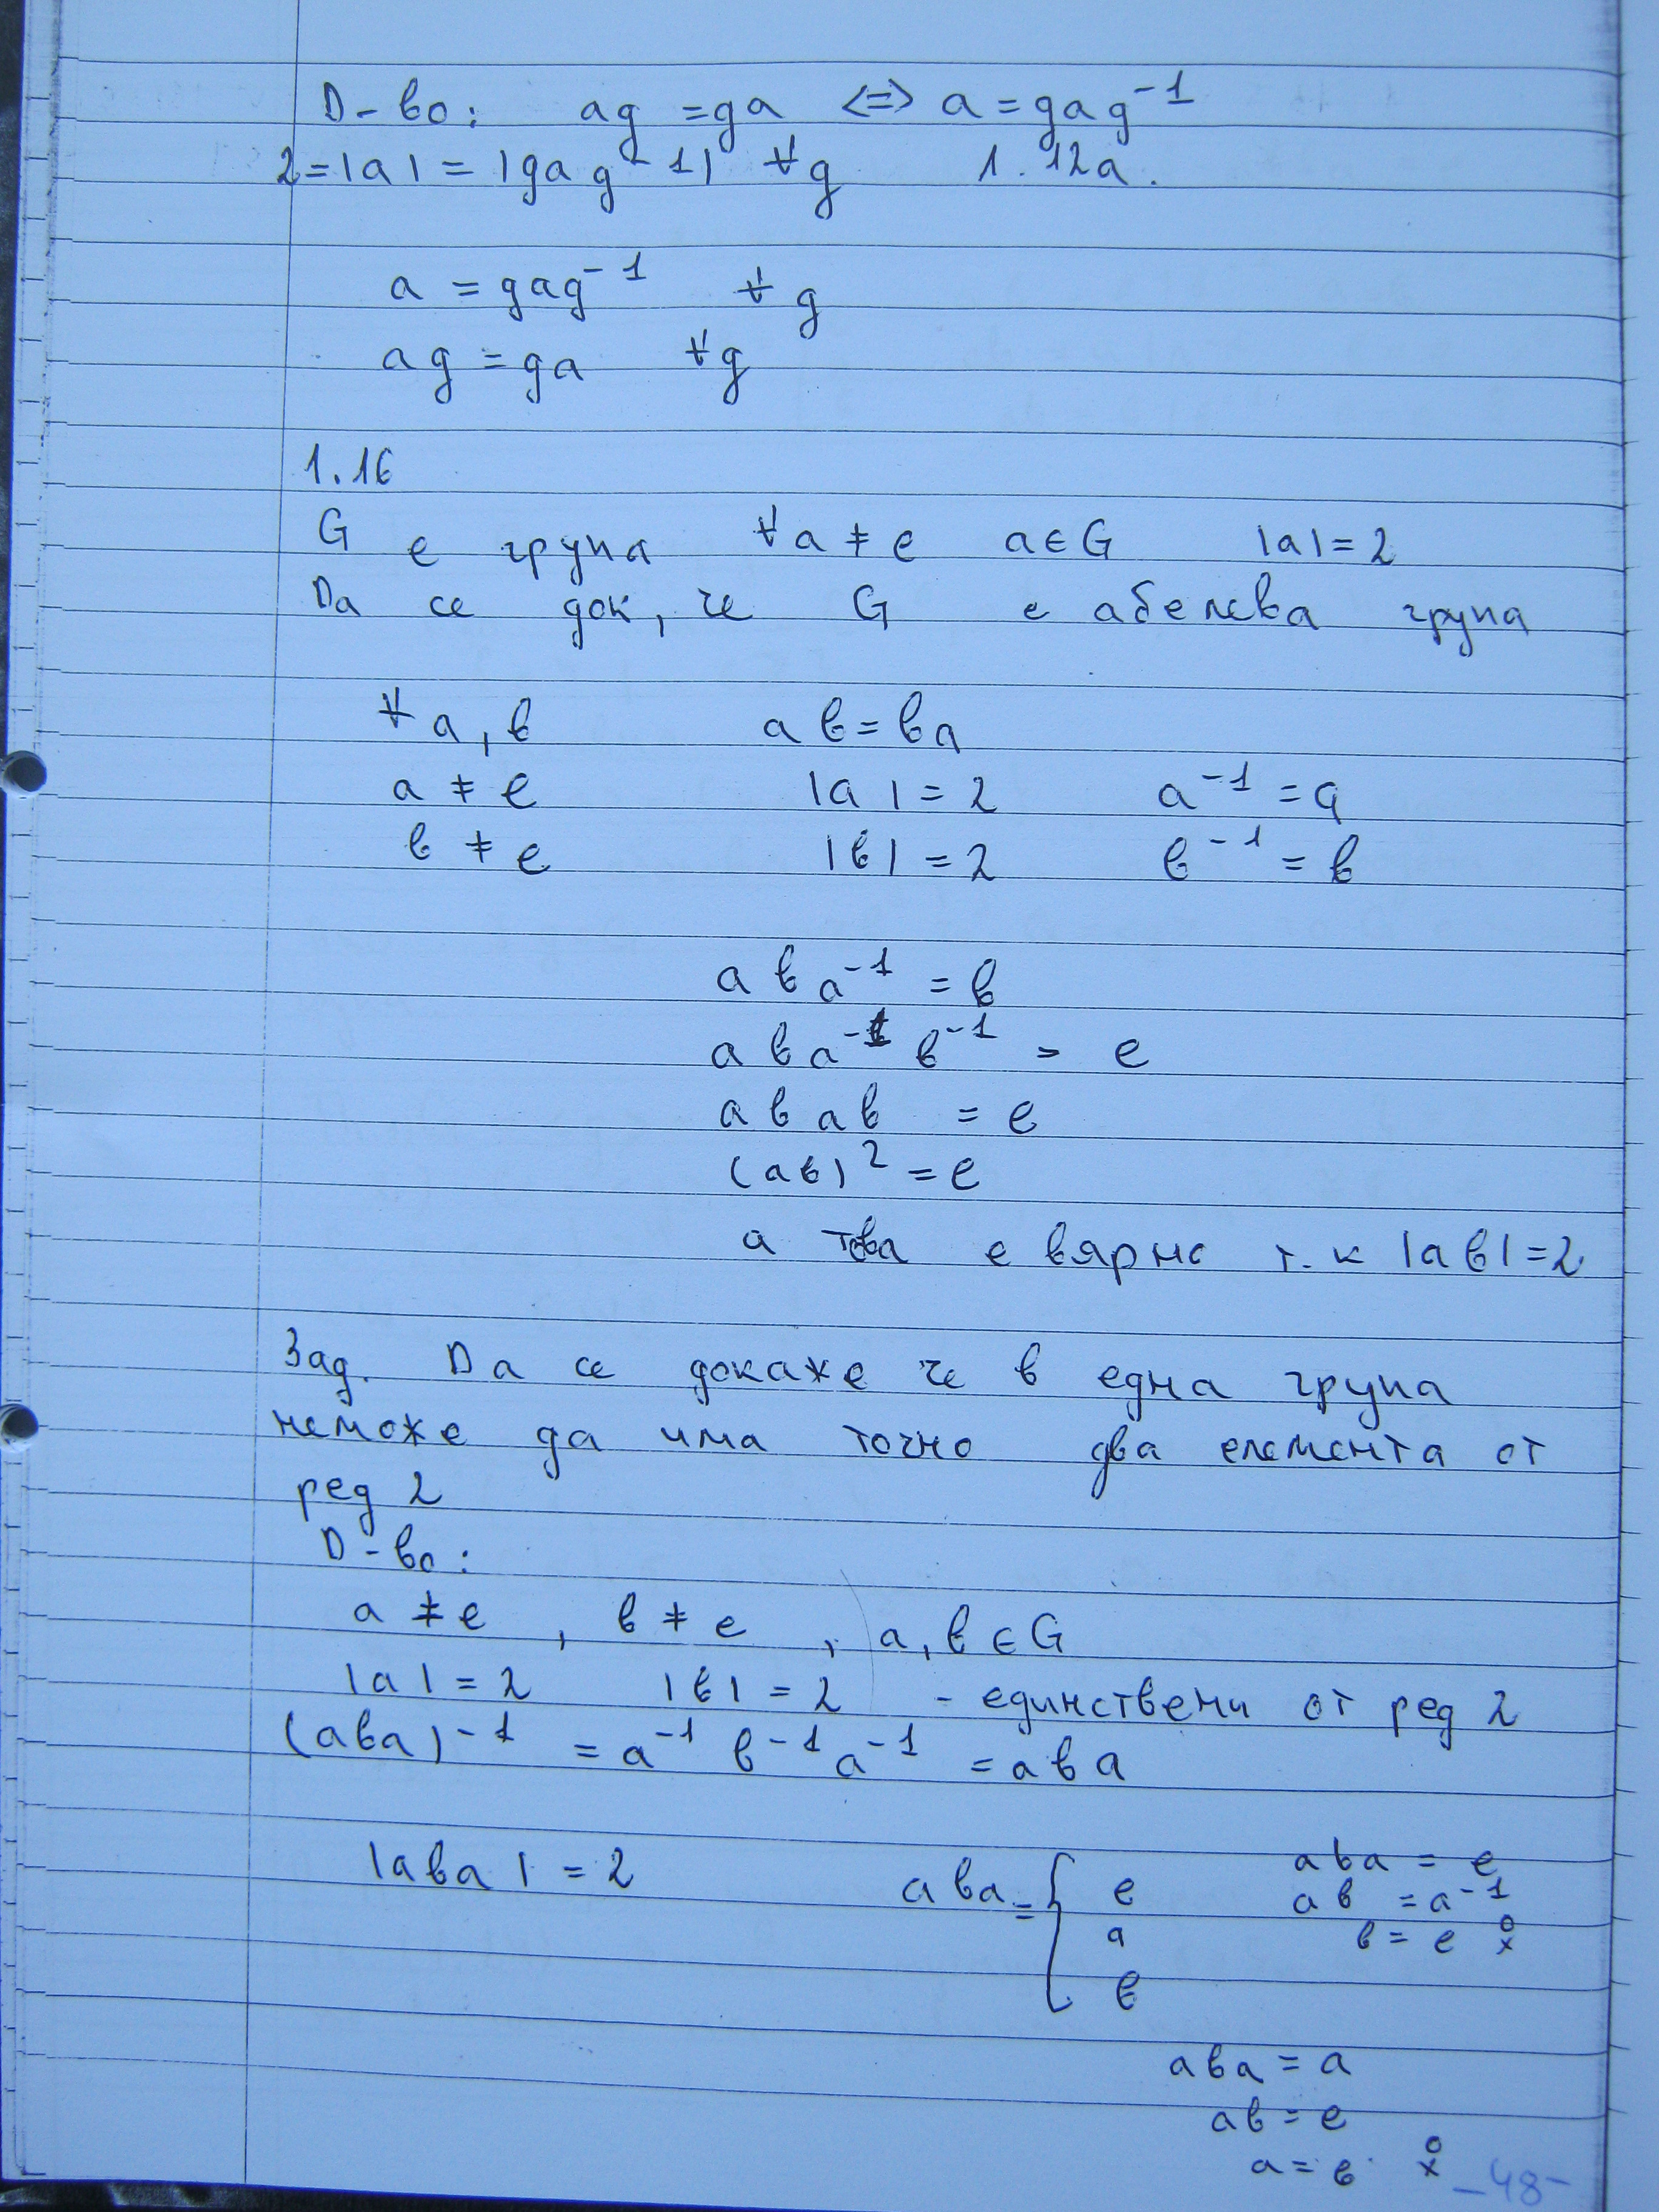 D-во: ag = ga <=> a = gag⁻¹
2 = |a| = |gag⁻¹| ∀g 1.12а.
a = gag⁻¹ ∀g
ag = ga ∀g
1.16
G е група ∀a ≠ e a∈G |a| = 2
Da се док, че G е абелева група
∀ a, в aв = вa
a ≠ e |a| = 2 a⁻¹ = a
в ≠ e |в| = 2 в⁻¹ = в
a в a⁻¹ = в
a в a⁻¹ в⁻¹ = e
a в a в = e
(aв)² = e
а това е вярно т.к |aв| = 2
Зад. Da се докаже че в една група
неможе да има точно два елемента от
ред 2
D-во:
a ≠ e , в ≠ e , a, в ∈ G
|a| = 2 |в| = 2 - единствени от ред 2
(aвa)⁻¹ = a⁻¹ в⁻¹ a⁻¹ = a в a
|aвa| = 2 aвa = { e aвa = e
a aв = a⁻¹
в в = e
aвa = a
aв = e
a = в
-48-